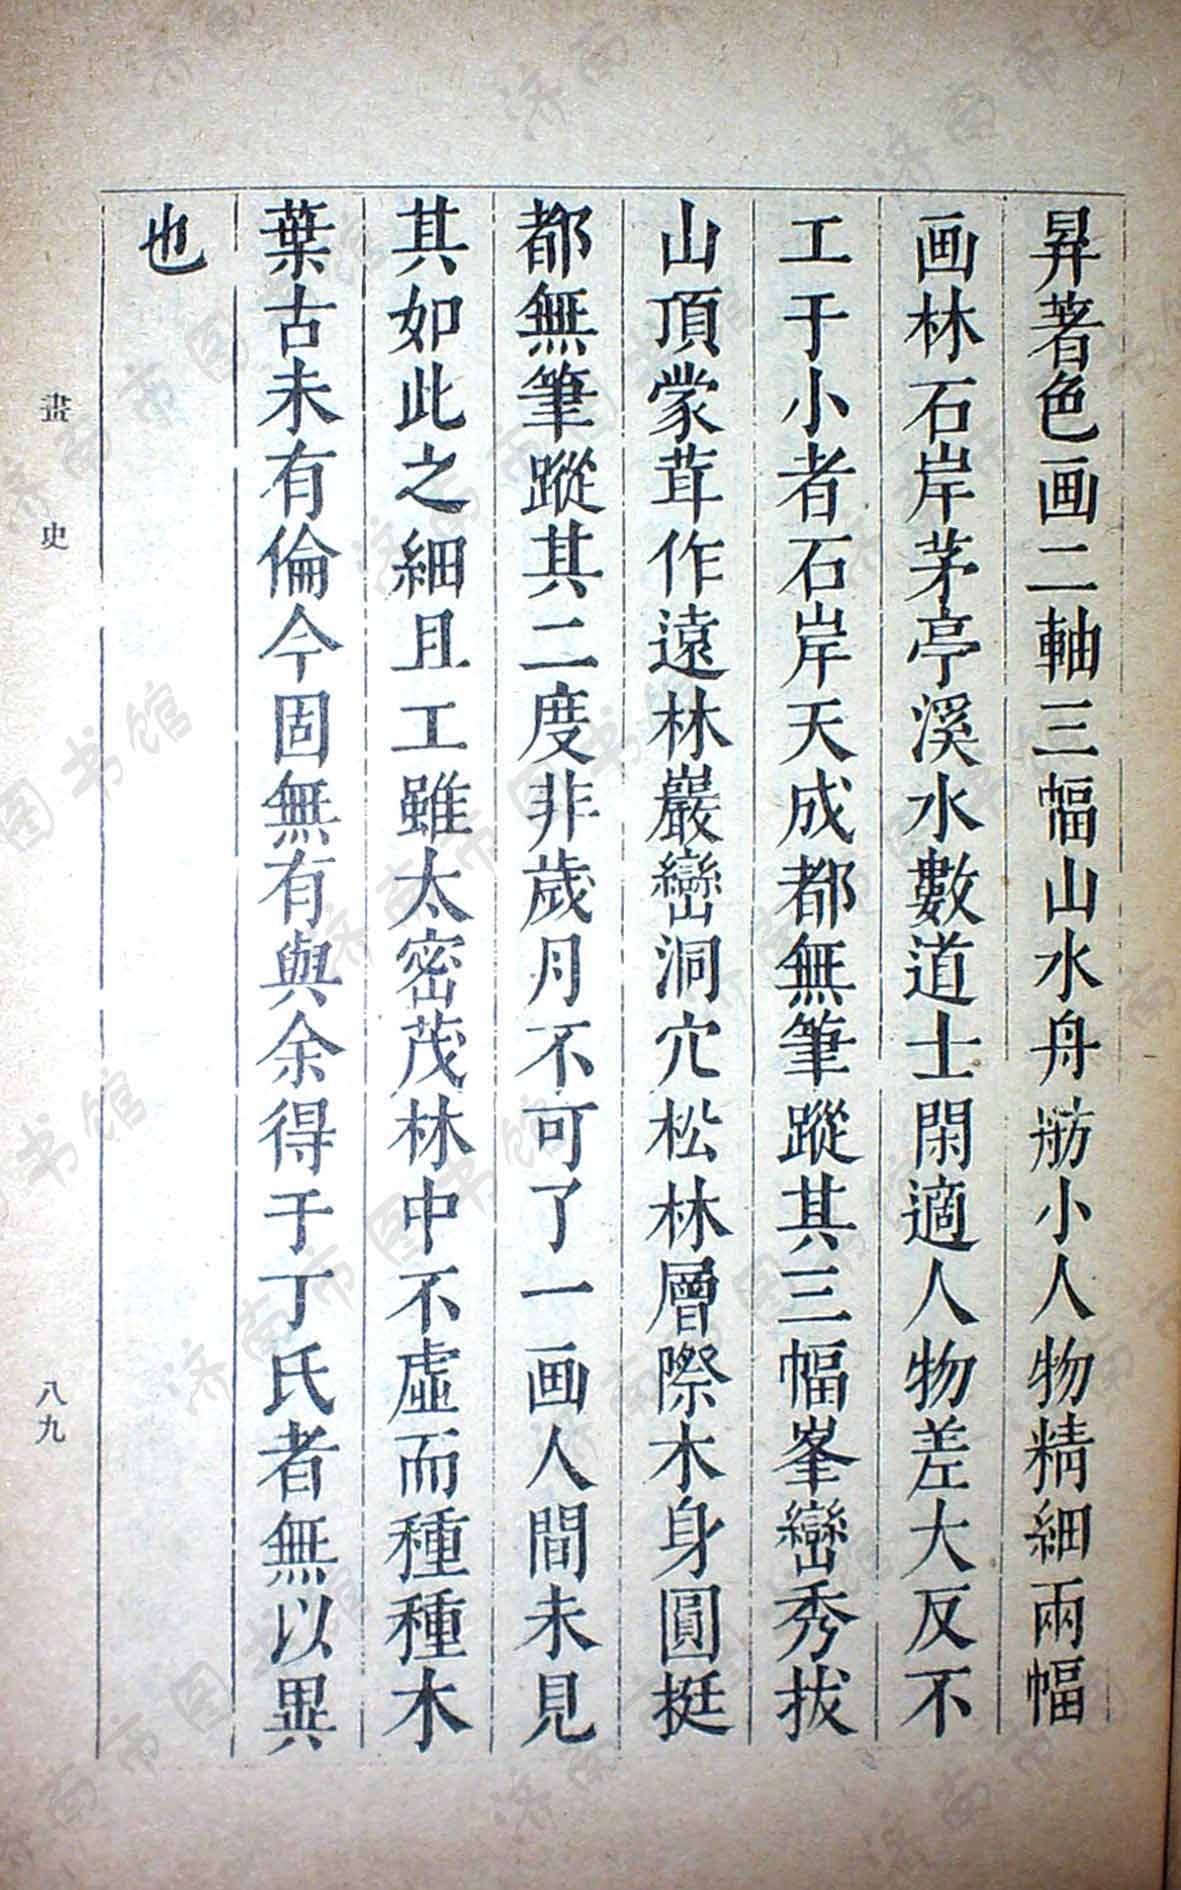 昇著色画二軸三幅山水舟舫小人物精細兩幅
画林石岸茅亭溪水數道士閑適人物差大反不
工于小者石岸天成都無筆蹤其三幅峯巒秀拔
山頂蒙茸作遠林巖巒洞穴松林層際木身圓挺
都無筆蹤其二度非歲月不可了一画人間未見
其如此之細且工雖太密茂林中不虛而種種木
葉古未有倫今固無有與余得于丁氏者無以異
也
畫史
八九
济南市图书馆